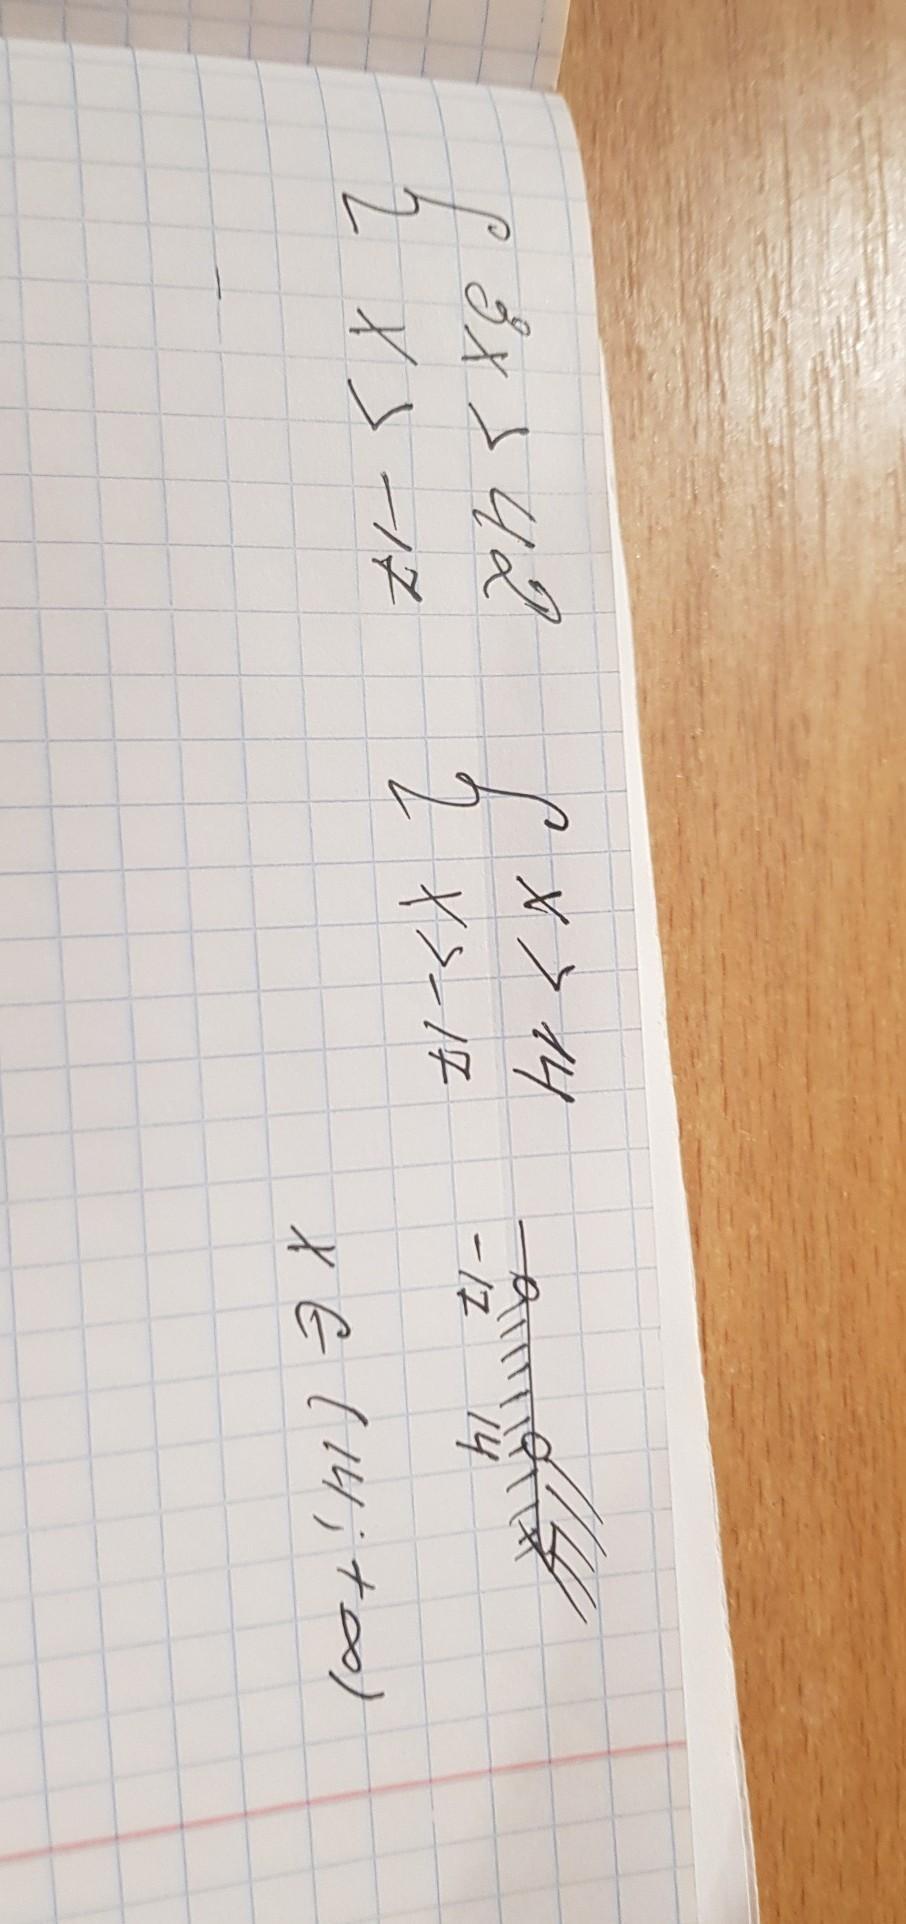 { 3x > 42
x > -17
{ x > 14
x > -17
-17 14
x ∈ (14; +∞)